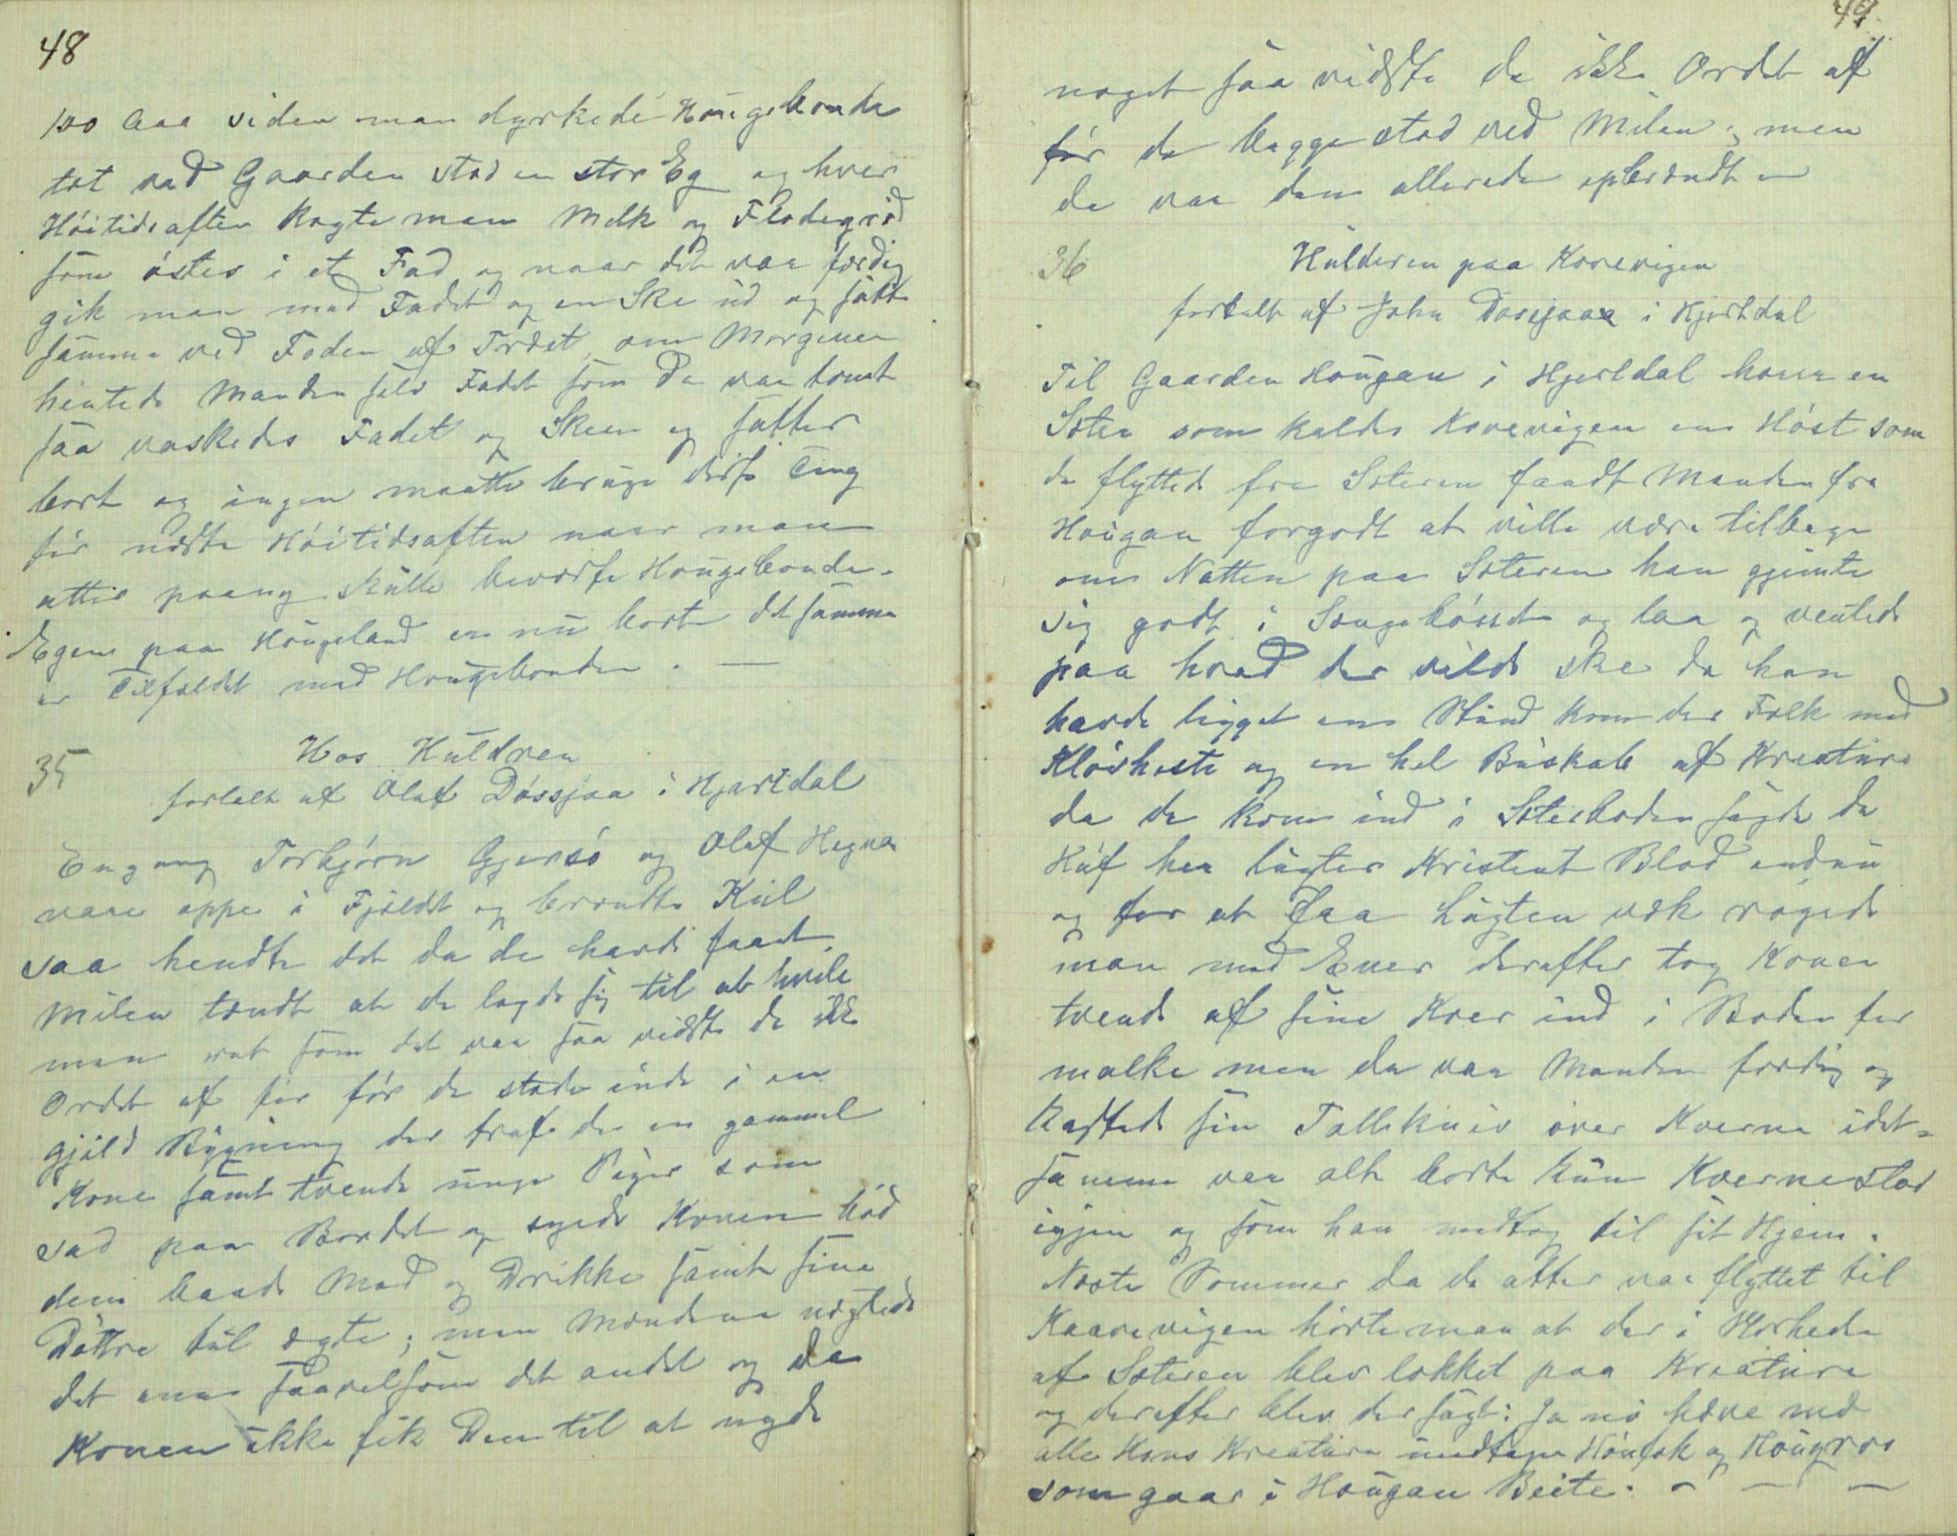 48
100 Aaa siden man dyrkede Hougebonde
tæt ved Gaarden stod en stor Eg og hver
Höitidsaften kogte man Melk og Flödegröd
som östes i et Fad og naar det var færdig
gik man med Fadet og en Ske ud og satte
samme ved Foden af Træet, om Morgenen
hentede Manden selv Fadet som da var tomt
saa vaskedes Fadet og Skeen og sattes
bort og ingen maatte bruge disse Ting
för næste Höitidsaften naar man
atter paany skulle beværte Hougebonden.
Egen paa Hougeland er nu borte det samme
er Tilfældet med Hougebonden. —
35
Hos Huldren
fortalt af Olaf Dössjaa i Hjartdal
Engang Torbjörn Gjersö og Olaf Hegna
vare oppe i Fjeldet og brændte Kul
saa hendte det da de havde faaet
Milen tændt at de lagde sig til at hvile
men ret som det var saa vidste de ikke
Ordet af för för de stode inde i en
gjild Bygning der traf de en gammel
Kone samt tvende unge Piger som
sad paa Bordet og syede Konen böd
dem baade Mad og Drikke samt sine
Döttre til ægte; men Mændene nægtede
det ene saavelsom det andet og da
Konen ikke fik Dem til at nyde
49.
noget saa vidste de ikke Ordet af
för de begge stod ved Milen; men
da var den allerede opbrændt —
36
Hulderen paa Korevigen
fortalt af John Dössjaa i Hjertdal
Til Gaarden Hougan i Hjertdal hörer en
Sæter som kaldes Korevigen en Höst som
de flyttede fra Sæteren fandt Manden fra
Hougan forgodt at ville være tilbage
om Natten paa Sæteren han gjemte
sig godt i Sengebösset og laa og ventede
paa hvad der vilde ske da han
havde ligget en Stund kom der Folk med
Klövheste og en hel Buskab af Kreature
da de kom ind i Sæterboden sagde de
Huf her lugter Kristent Blod endnu
og for at faa Lugten væk rögede
man med Ener derefter tog Konen
tvende af sine Köer ind i Boden for
malke men da var Manden færdig og
kastede sin Tollekniv over Kverne idet-
samme var alt borte kun Kvernestod
igjen og som han medtog til sit Hjem.
Næste Sommer da de atter var flyttet til
Kaarevigen hörte man at der i Nærheden
af Sæteren blev lokket paa Kreature
og derefter blev der sagt: Ja nö hæve me
alle Hans Kreature undtagen Höufak og Hougros
som gaar i Hougan Beite. — — —